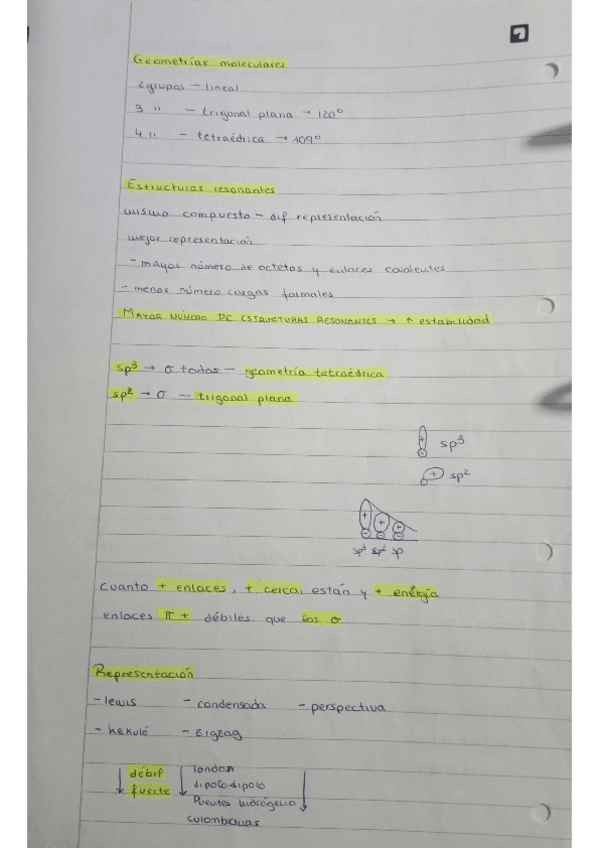 Geometrías moleculares
2 grupos - lineal
3 " - trigonal plana → 120º
4 " - tetraédrica → 109º
Estructuras resonantes
mismo compuesto - dif representación
mejor representación
- mayor número de octetos y enlaces covalentes
- menor número cargas formales
MAYOR NÚMERO DE ESTRUCTURAS RESONANTES → ↑ estabilidad
sp³ → σ todas - geometría tetraédrica
sp² → σ - trigonal plana
+ sp³
+ sp²
+ + +
sp³ sp² sp
cuanto + enlaces, + cerca, están y + energía
enlaces π + débiles que los σ
Representación
- lewis - condensada - perspectiva
- kekulé - zigzag
↓ débil ↓ london ↓
fuerte dipolo-dipolo
Puentes hidrógeno
culombianas